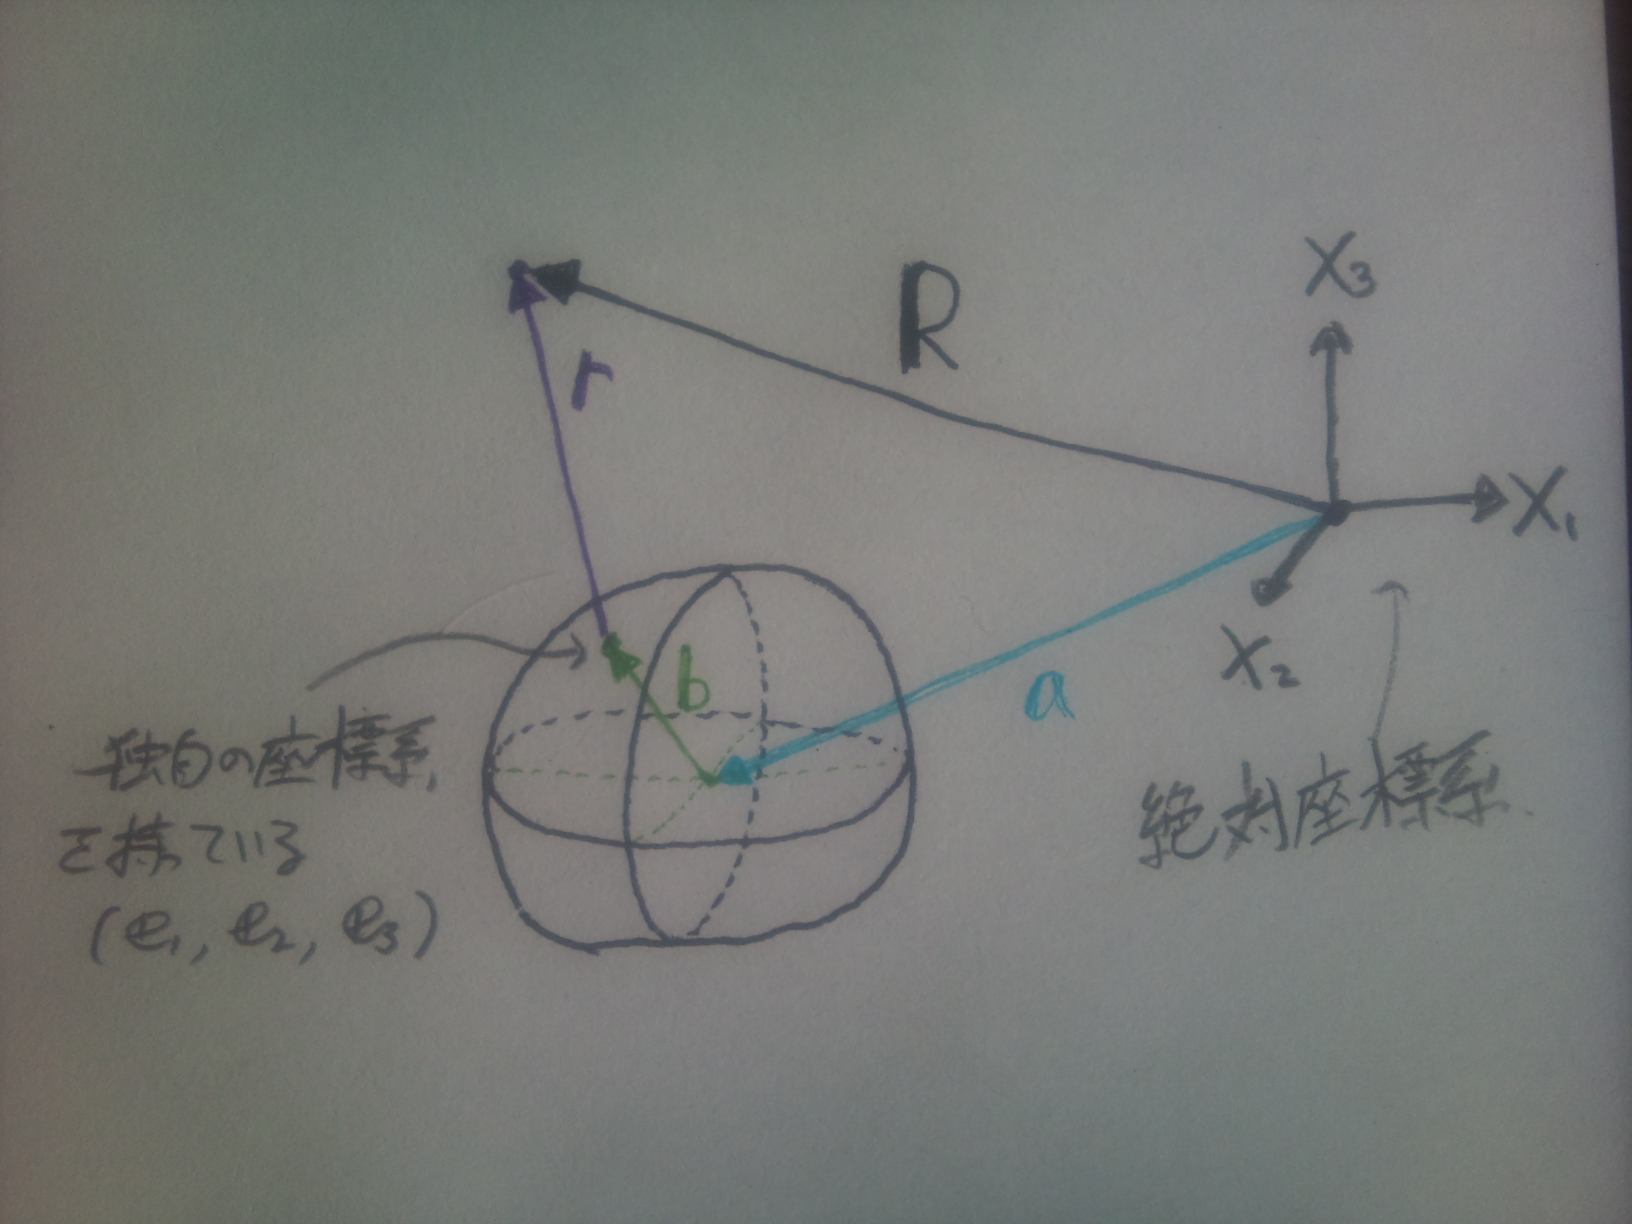 X₃
R
r
X₁
X₂
b
a
独自の座標系
を持っている
(e₁, e₂, e₃)
絶対座標系